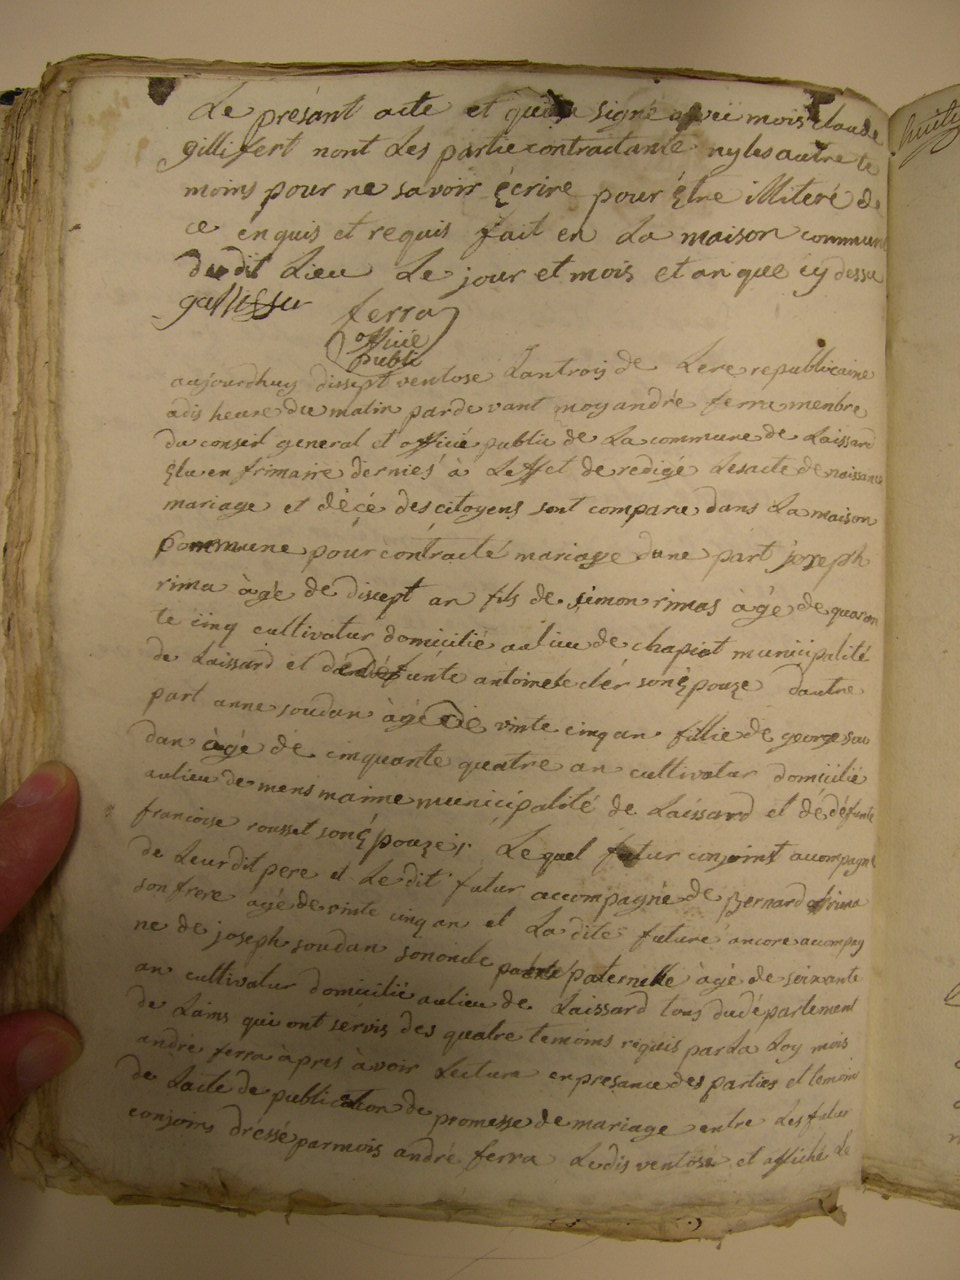 Le présant acte et que signé avec mois claude
gillifert nont Les partie contractante ny les autre te
moins pour ne savoir Ecrire pour Etre illiteré de
ce enquis et requis fait en La maison commune
dudit Lieu Le jour et mois et an que cy dessu
ferra
officié
publi
aujourdhuy dissept ventose Lantrois de Lere republicaine
adis heure du matin pardevant moy andré ferra menbre
du conseil general et officié public de La commune de Laissard
Elu en frimaire dernies à Leffet de redigé Lesacte de naissance
mariage et décé des citoyens sont comparu dans La maison
Commune pour contracté mariage dune part joseph
rima àgé de disept an fils de simon rimas àgé de quaran
te cinq cultivatur domicilié aulieu de chapiot municipalité
de Laissard et dedéfunte antoinete clér son Epouze dautre
part anne soudan àgé de vinte cinq an fillie de george sou
dan àgé de cinquante quatre an cultivatur domicilié
aulieu de mens maine municipalité de Laissard et dedéfunte
francoise rousset son Epouze; Le quel futur conjoint accompagné
de Leurdit pere et Le dit futur accompagné de Bernard rima
son frere agé de vinte cinq an et La dite future ancore accompag
ne de joseph soudan son oncle paternelle àgé de soixante
an cultivatur domicilié aulieu de Laissard tous dudépartement
de Lains qui ont servis des quatre temoins requis par La Loy mois
andre ferra àpres àvoir Lecture enpresance des parties et temoins
de Lacte de publication de promesse de mariage entre Les futur
conjoins dressé parmois andré ferra Ledis ventose et affiché Le